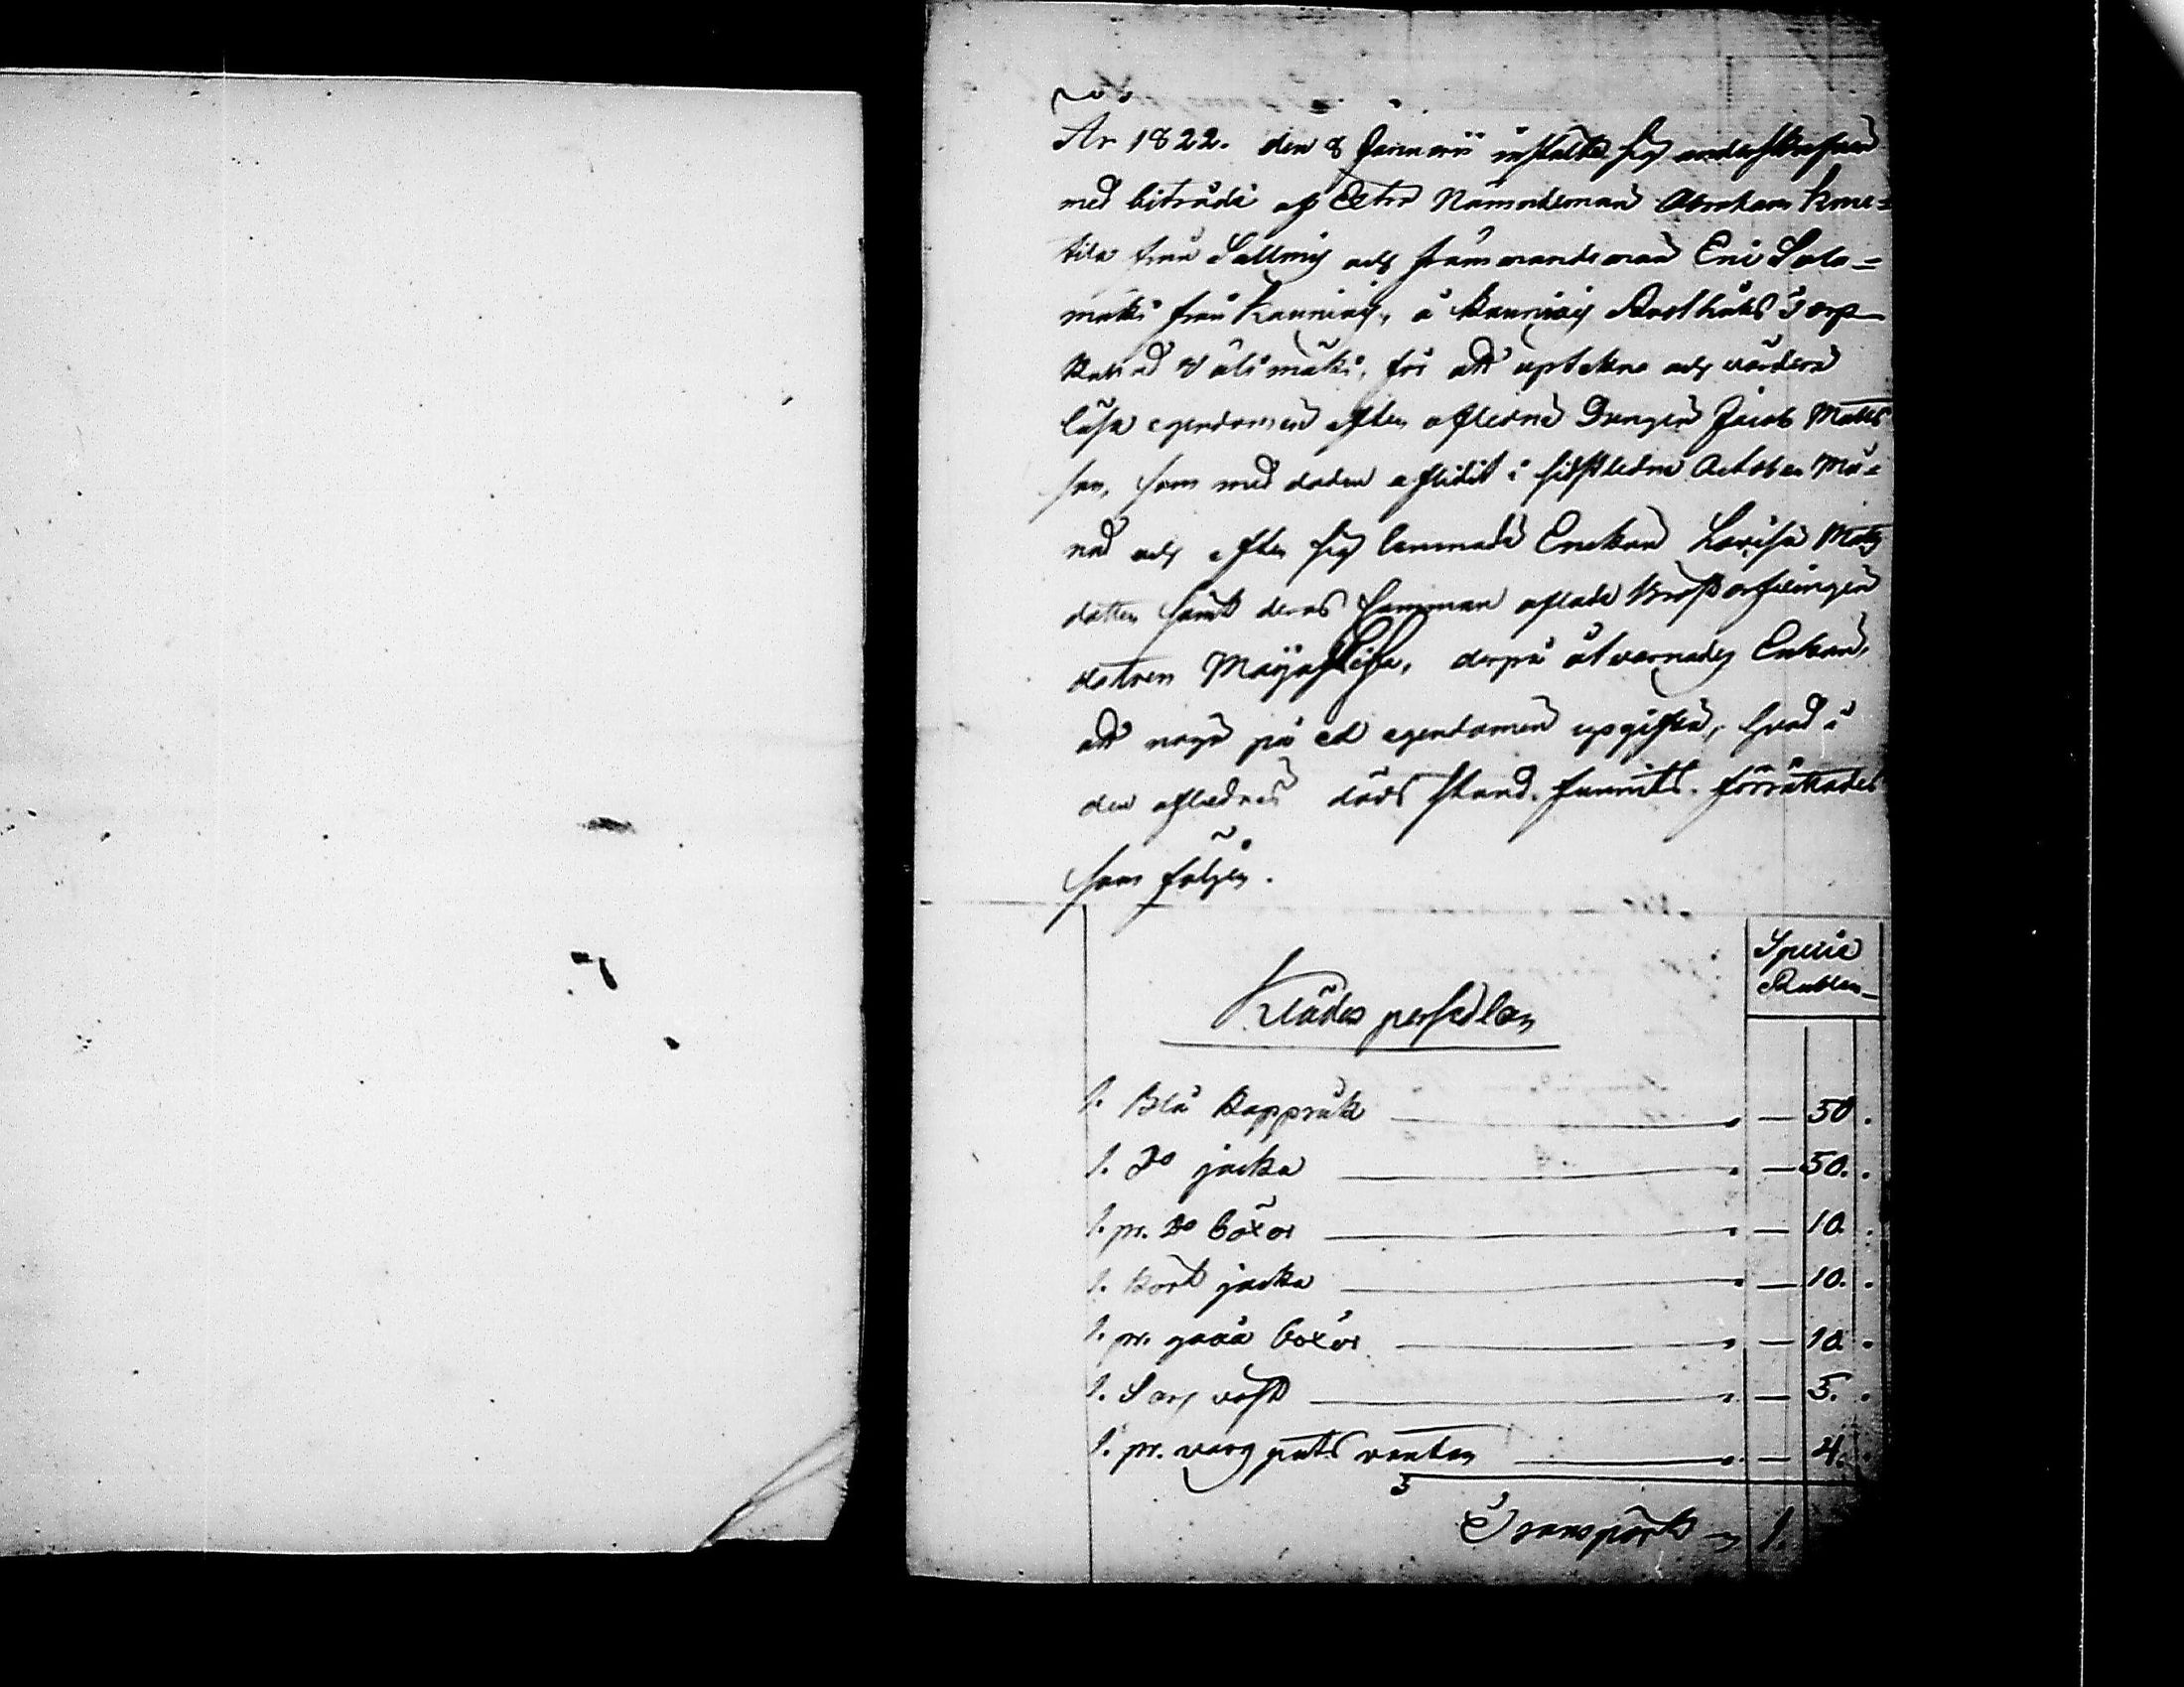 År 1822. den 8 Januarii instälte sig undertecknad
med biträde af Extra Nämndeman Abraham
tila från Sallmis och Nämndeman Eric Salo=
mäki från Kauniais, å Kauniais Rusthålls Torp
Välimäki, för att uptekna och värdera
lösa egendomen efter afledne Drengen Jacob Matts
son, som med döden aflidit i sidstledne October Må=
nad och efter sig lemnade Enckan Lovisa Mats
dotter samt deras samman aflade Bröstarfvingen
dotren Maija Lisa, derpå åtvarnades Enkan,
att noga på ed egendomen upgifva, hvad i
den aflednes döds stund funnits. förrättades
som följer.
Specie
Rubler
Klädes persedlar
1. Blå Kappråk — 50.
1. Do jacka — 50.
1. pr. Do böxor — 10.
1. kort jacka — 10.
1. pr. gråa böxor — 10.
1. Sarg väst — 5.
1. pr. varg vantar — 4.
Transport 1.